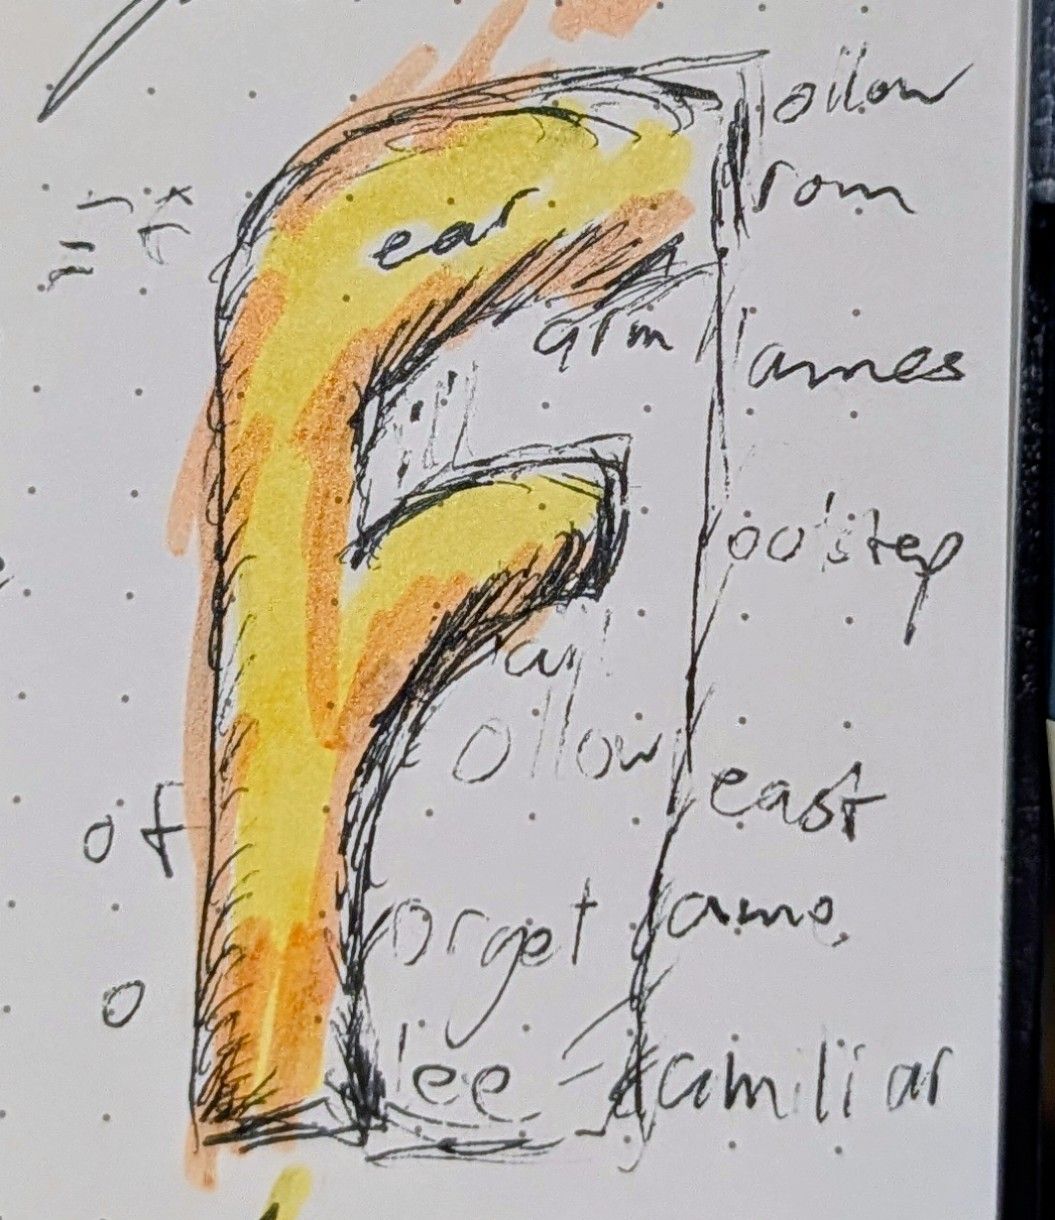 F
ollow
rom
ear
arm
ames
ootstep
ollow
of
east
orget
ame
o
lee
familiar